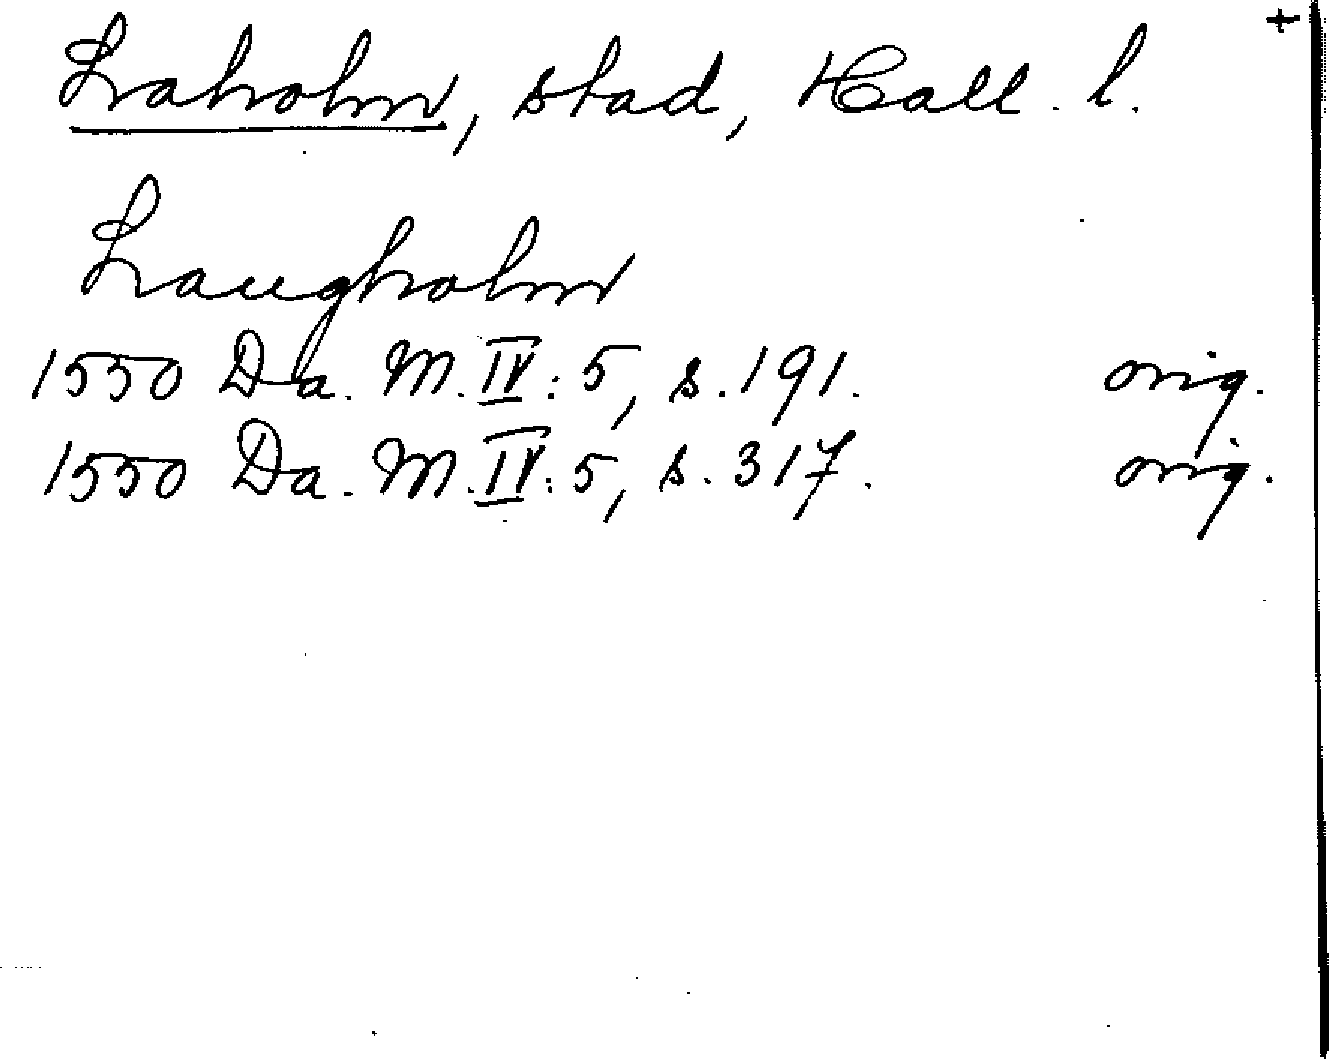 +
Laholm, stad, Hall. l.
Laugholm
1550 Da. M. IV: 5, s. 191. orig.
1550 Da. M. IV: 5, s. 317. orig.